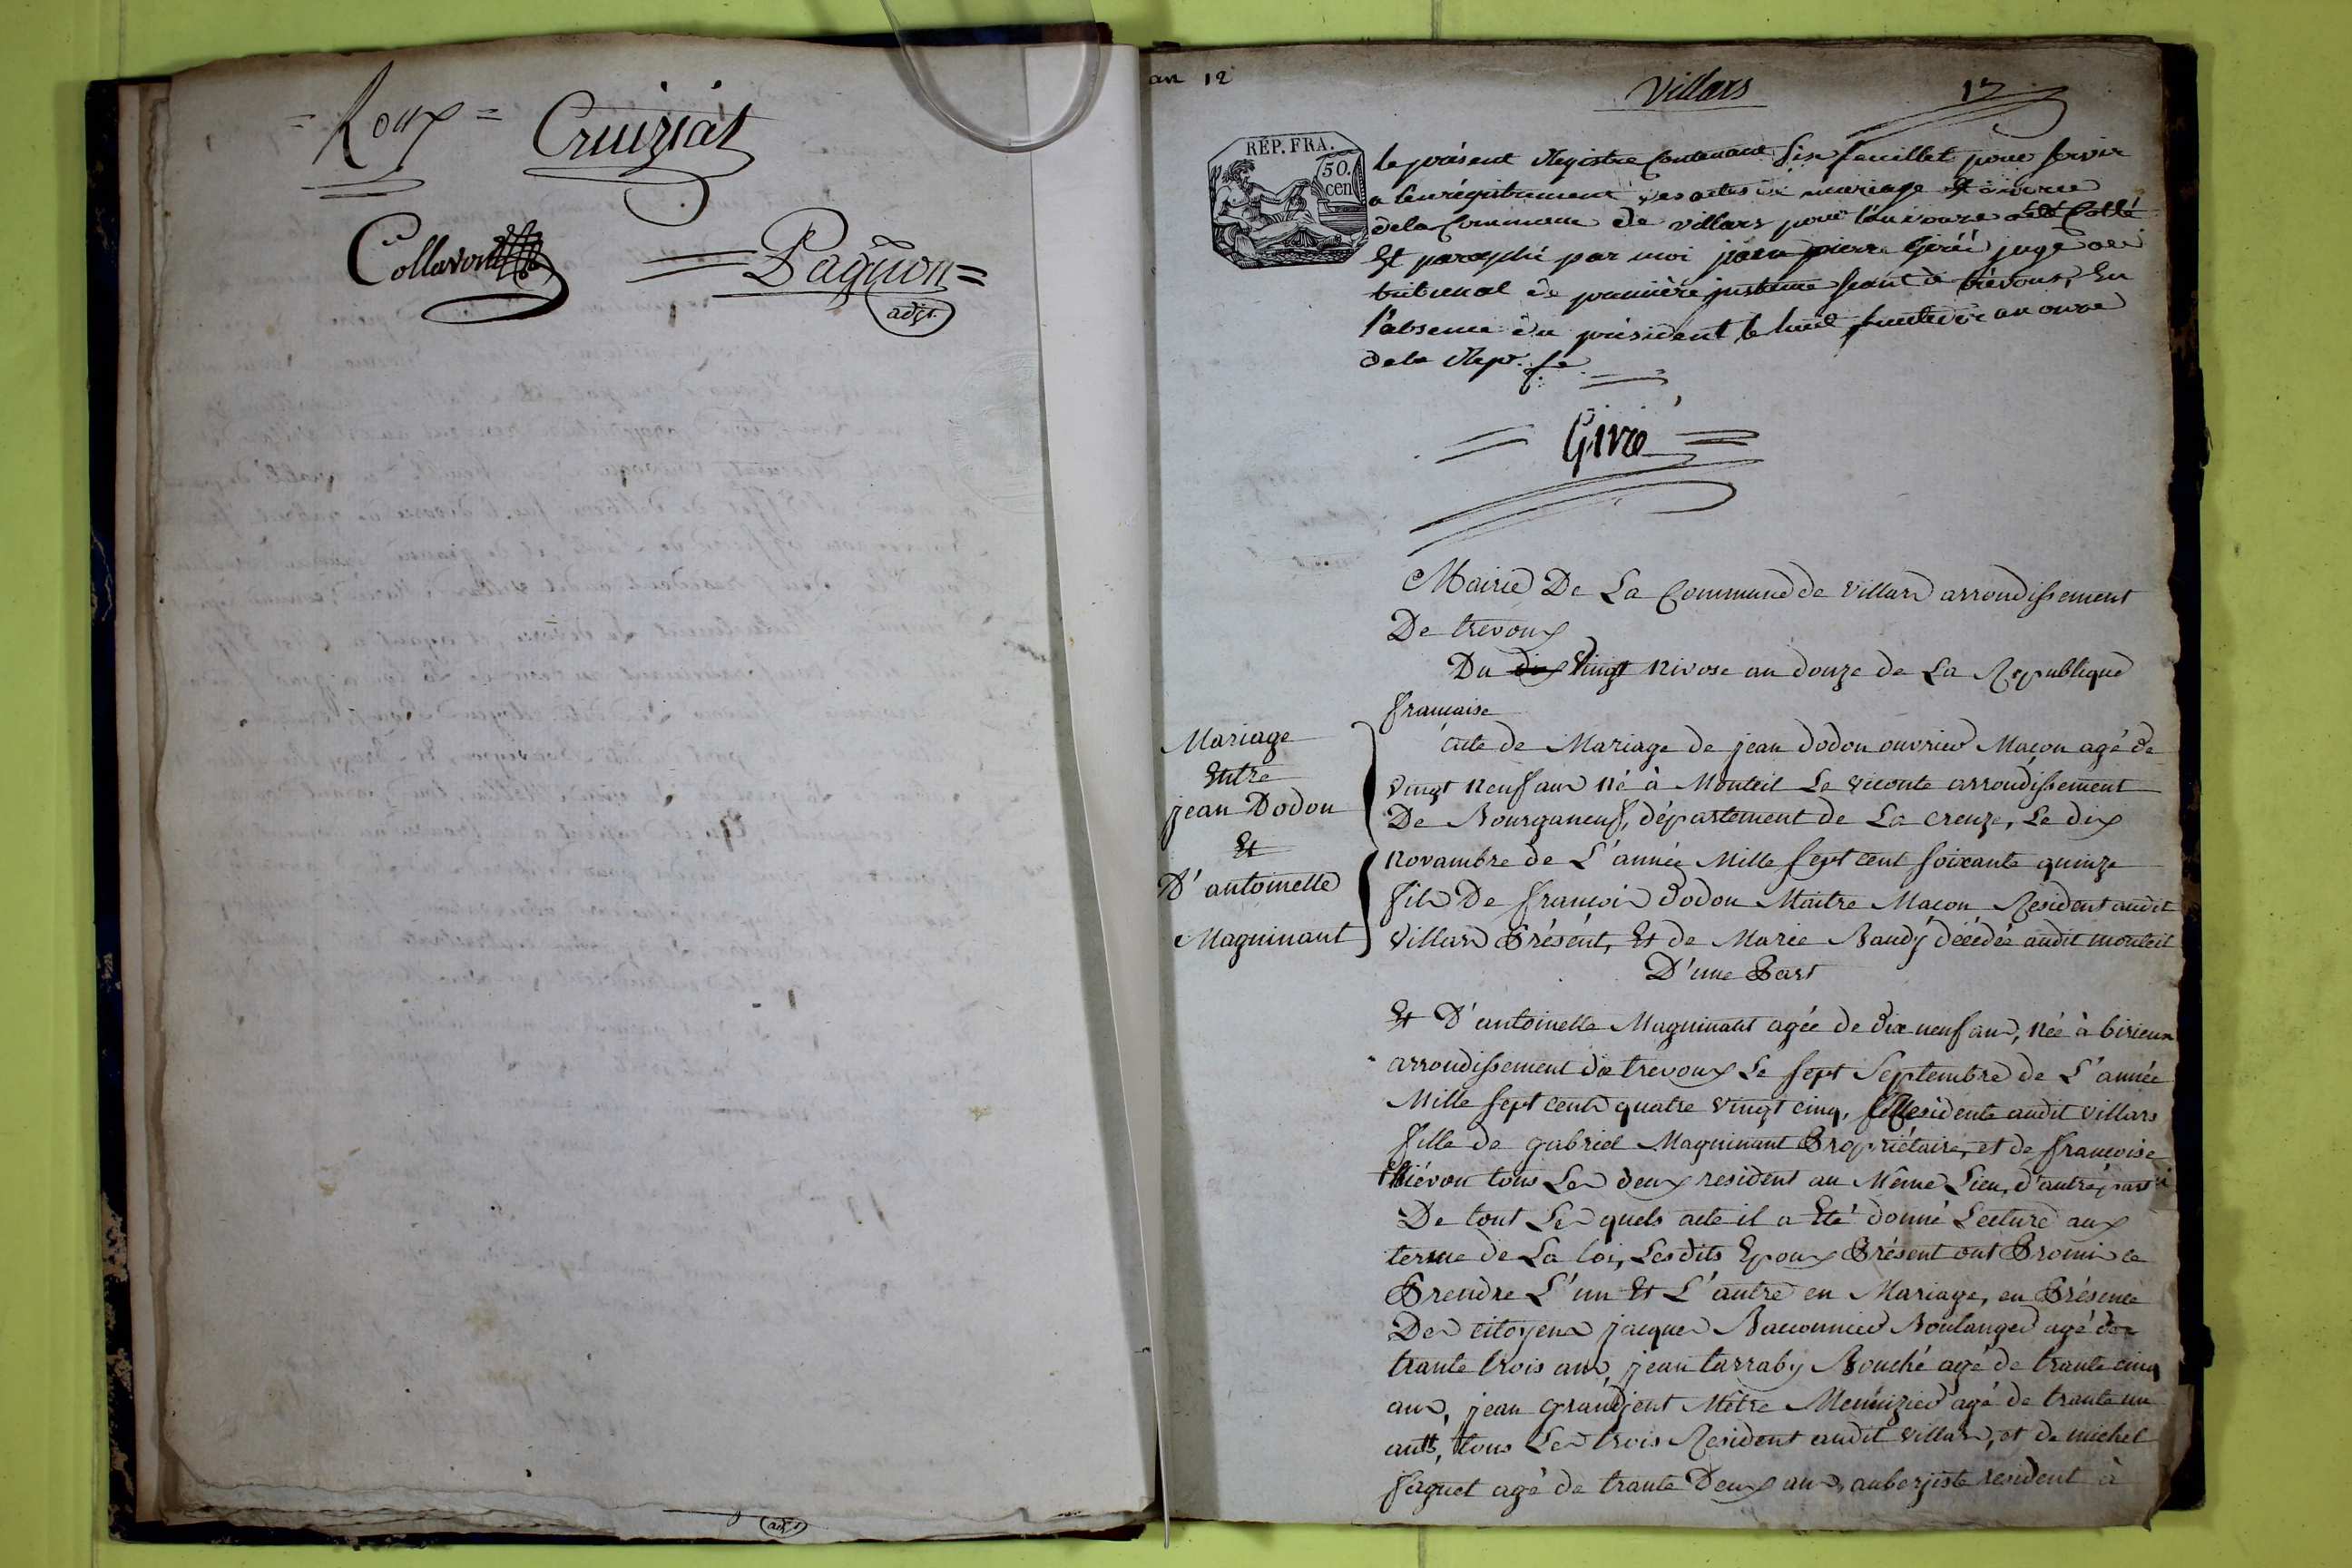 = Roux = Cruiziat
Collavord
= Pagnon =
adjt
adjt
an 12
Villars
12
RÉP. FRA.
50.
cen
le présent Registre Contenant Six feuillet pour servir
a l'enrégistrement des actes de mariage et divorce
dela Commune de villars pour l'an douze a été Collé
Et paraphé par moi jean pierre Givré juge au
tribunal de première instance séant à trévoux, En
l'absence du président le huit fructidor an onze
dela Rep. fe
= Givré =
Mairie De La Commune de Villars arrondissement
De trevoux
Du dix Vingt nivose an douze de La Republique
francaise
Mariage
Entre
jean Dodon
Et
D'antoinette
Maguinant
acte de Mariage de jean dodon ouvrier Maçon agé de
vingt neuf ans né à Monteil Le vicomte arrondissement
De Bourganeuf, département de La creuze, Le dix
novambre de L'année Mille sept cent soixante quinze
fils De francois dodon Maitre Macon Resident audit
Villars Présént, Et de Marie Baudy décédée audit monteil
D'une Part
Et D'antoinette Maguinant agée de dix neuf ans, née à birieux
arrondissement de trevoux Le sept Septembre de L'année
Mille sept cents quatre vingt cinq, Residente audit villars
fille de gabriel Maguinant Propriétaire, et de francoise
thiévon tous Les deux resident au Même Lieu, d'autre part
De tout Les quels acte il a Eté donné Lecture aux
terme de La loi, Lesdits Epoux Présent ont Promis ce
Prendre L'un Et L'autre en Mariage, en Présence
Des citoyens jacques Baconnier Boulanger agé de
trante trois ans, jean tarraby Bouché agé de trante cinq
ans, jean grandjent Mêtre Menuizier agé de trante un
ants, tous Les trois Resident audit villars, et de michel
faguet agé de trante Deux ans, auberjiste resident à